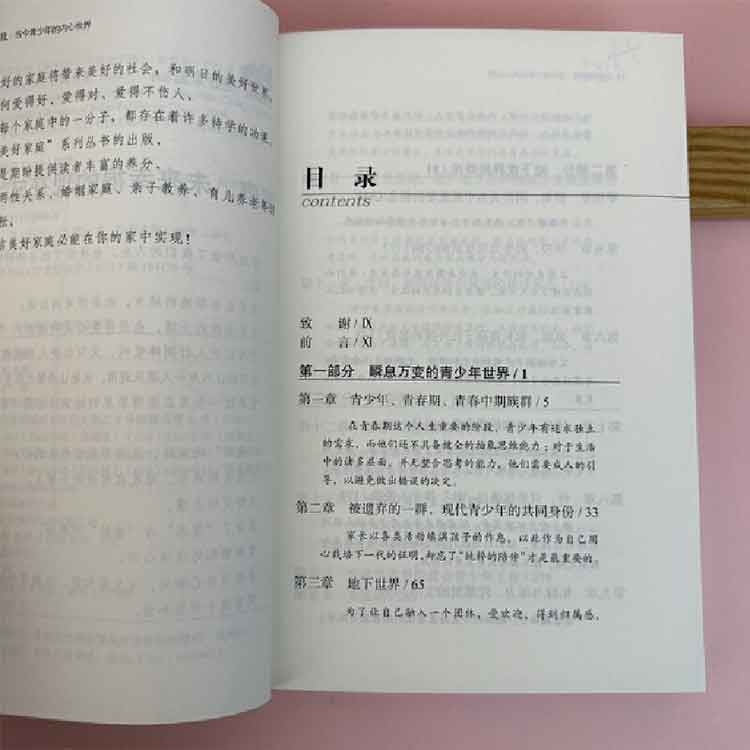 当今青少年的内心世界
好的家庭将带来美好的社会，和明日的美好世界。
何爱得好、爱得对、爱得不伤人，
每个家庭中的一分子，都存在着许多待学的功课。
美好家庭”系列丛书的出版，
是期盼提供读者丰富的养分，
两性关系、婚姻家庭、亲子教养、育儿养老等
信美好家庭必能在你的家中实现！
目 录
contents
致 谢/Ⅸ
前 言/Ⅺ
第一部分 瞬息万变的青少年世界/1
第一章 青少年、青春期、青春中期族群/5
在青春期这个人生重要的阶段，青少年有追求独立
的需求，而他们还不具备健全的抽象思维能力；对于生活
中的诸多层面，并无整合思考的能力，他们需要成人的引
导，以避免做出错误的决定。
第二章 被遗弃的一群，现代青少年的共同身份/33
家长以各类活动填满孩子的作息，以此作为自己用
心栽培下一代的证明，却忘了“纯粹的陪伴”才是最重要的。
第三章 地下世界/65
为了让自己融入一个团体，受欢迎、得到归属感，